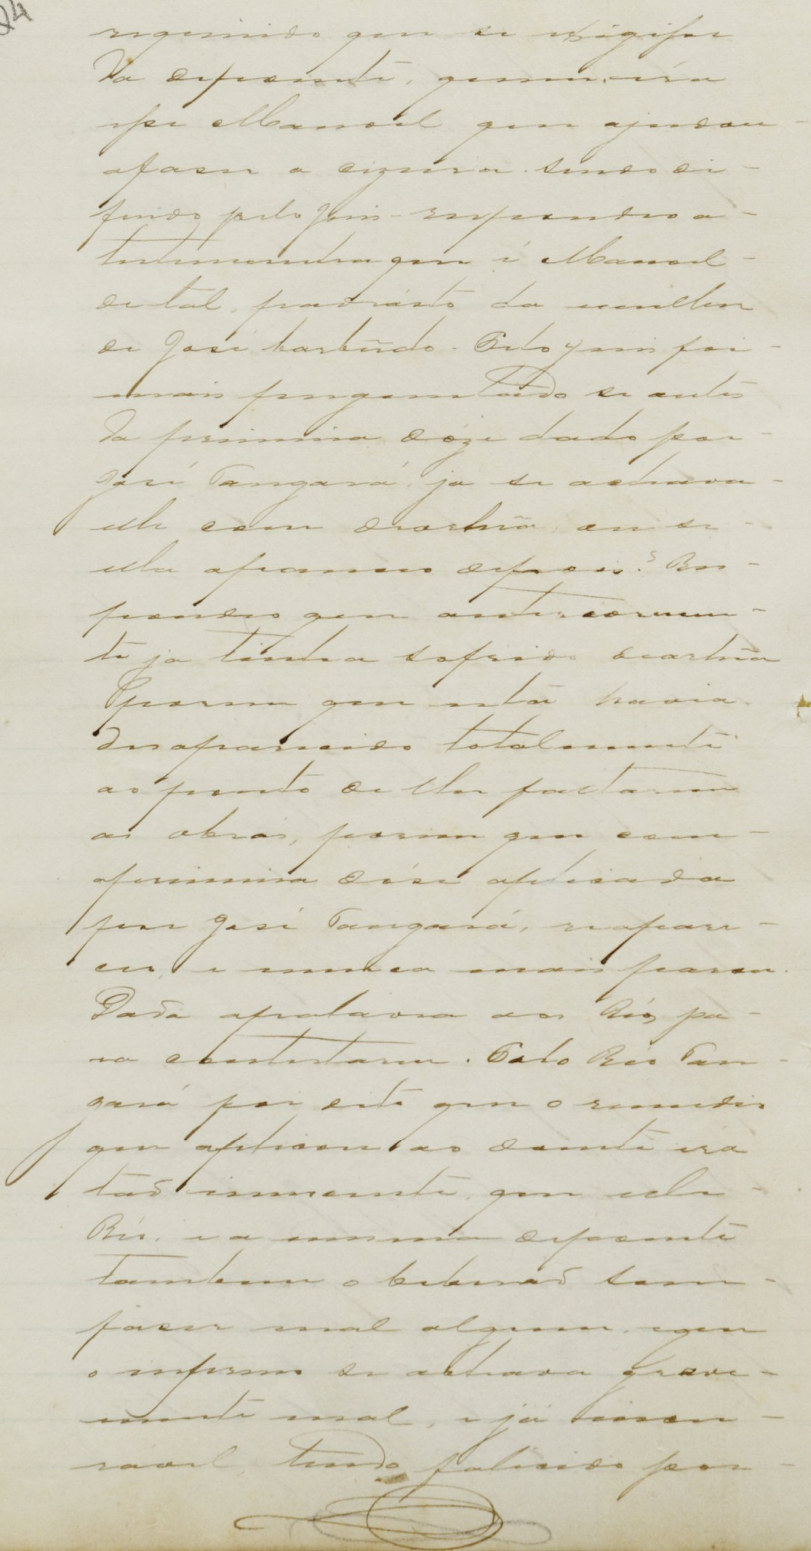 24
requerido que se exigisse
da depoente, quem éra
esse Manoel que ajudou
afaser a cigurra sendo de-
firido pelo Juis - respondeo a
testimunha que é Manoel
de tal, padrasto da mulher
de José barbudo. Pelo Juis foi
mais perguntado se antes
da primeira dóze dada por
José Tangará ja se achava
elle com diarhéa ou se
ella apareceu depois? Res-
pondeo que anteriormen-
te ja tinha sofrido diarhéa
porem que esta havia
desaparecido totalmente
ao ponto de lhe faltarem
as obras, porem que com
aprimeira dóse aplicada
por José Tangará, reapare-
ceu, e nunca mais parou.
Dada apalavra aos Réos pa-
ra contestarem. Pelo Réo Tan-
gará foi dito que o remedio
que aplicou ao doente éra
taõ innocente, que elle
Réo, e a mesma depoente
tambem o beberaõ sem
faser mal algum, e que
o enfermo se achava grave-
mente mal, e já incu-
ravel, tendo falecido por